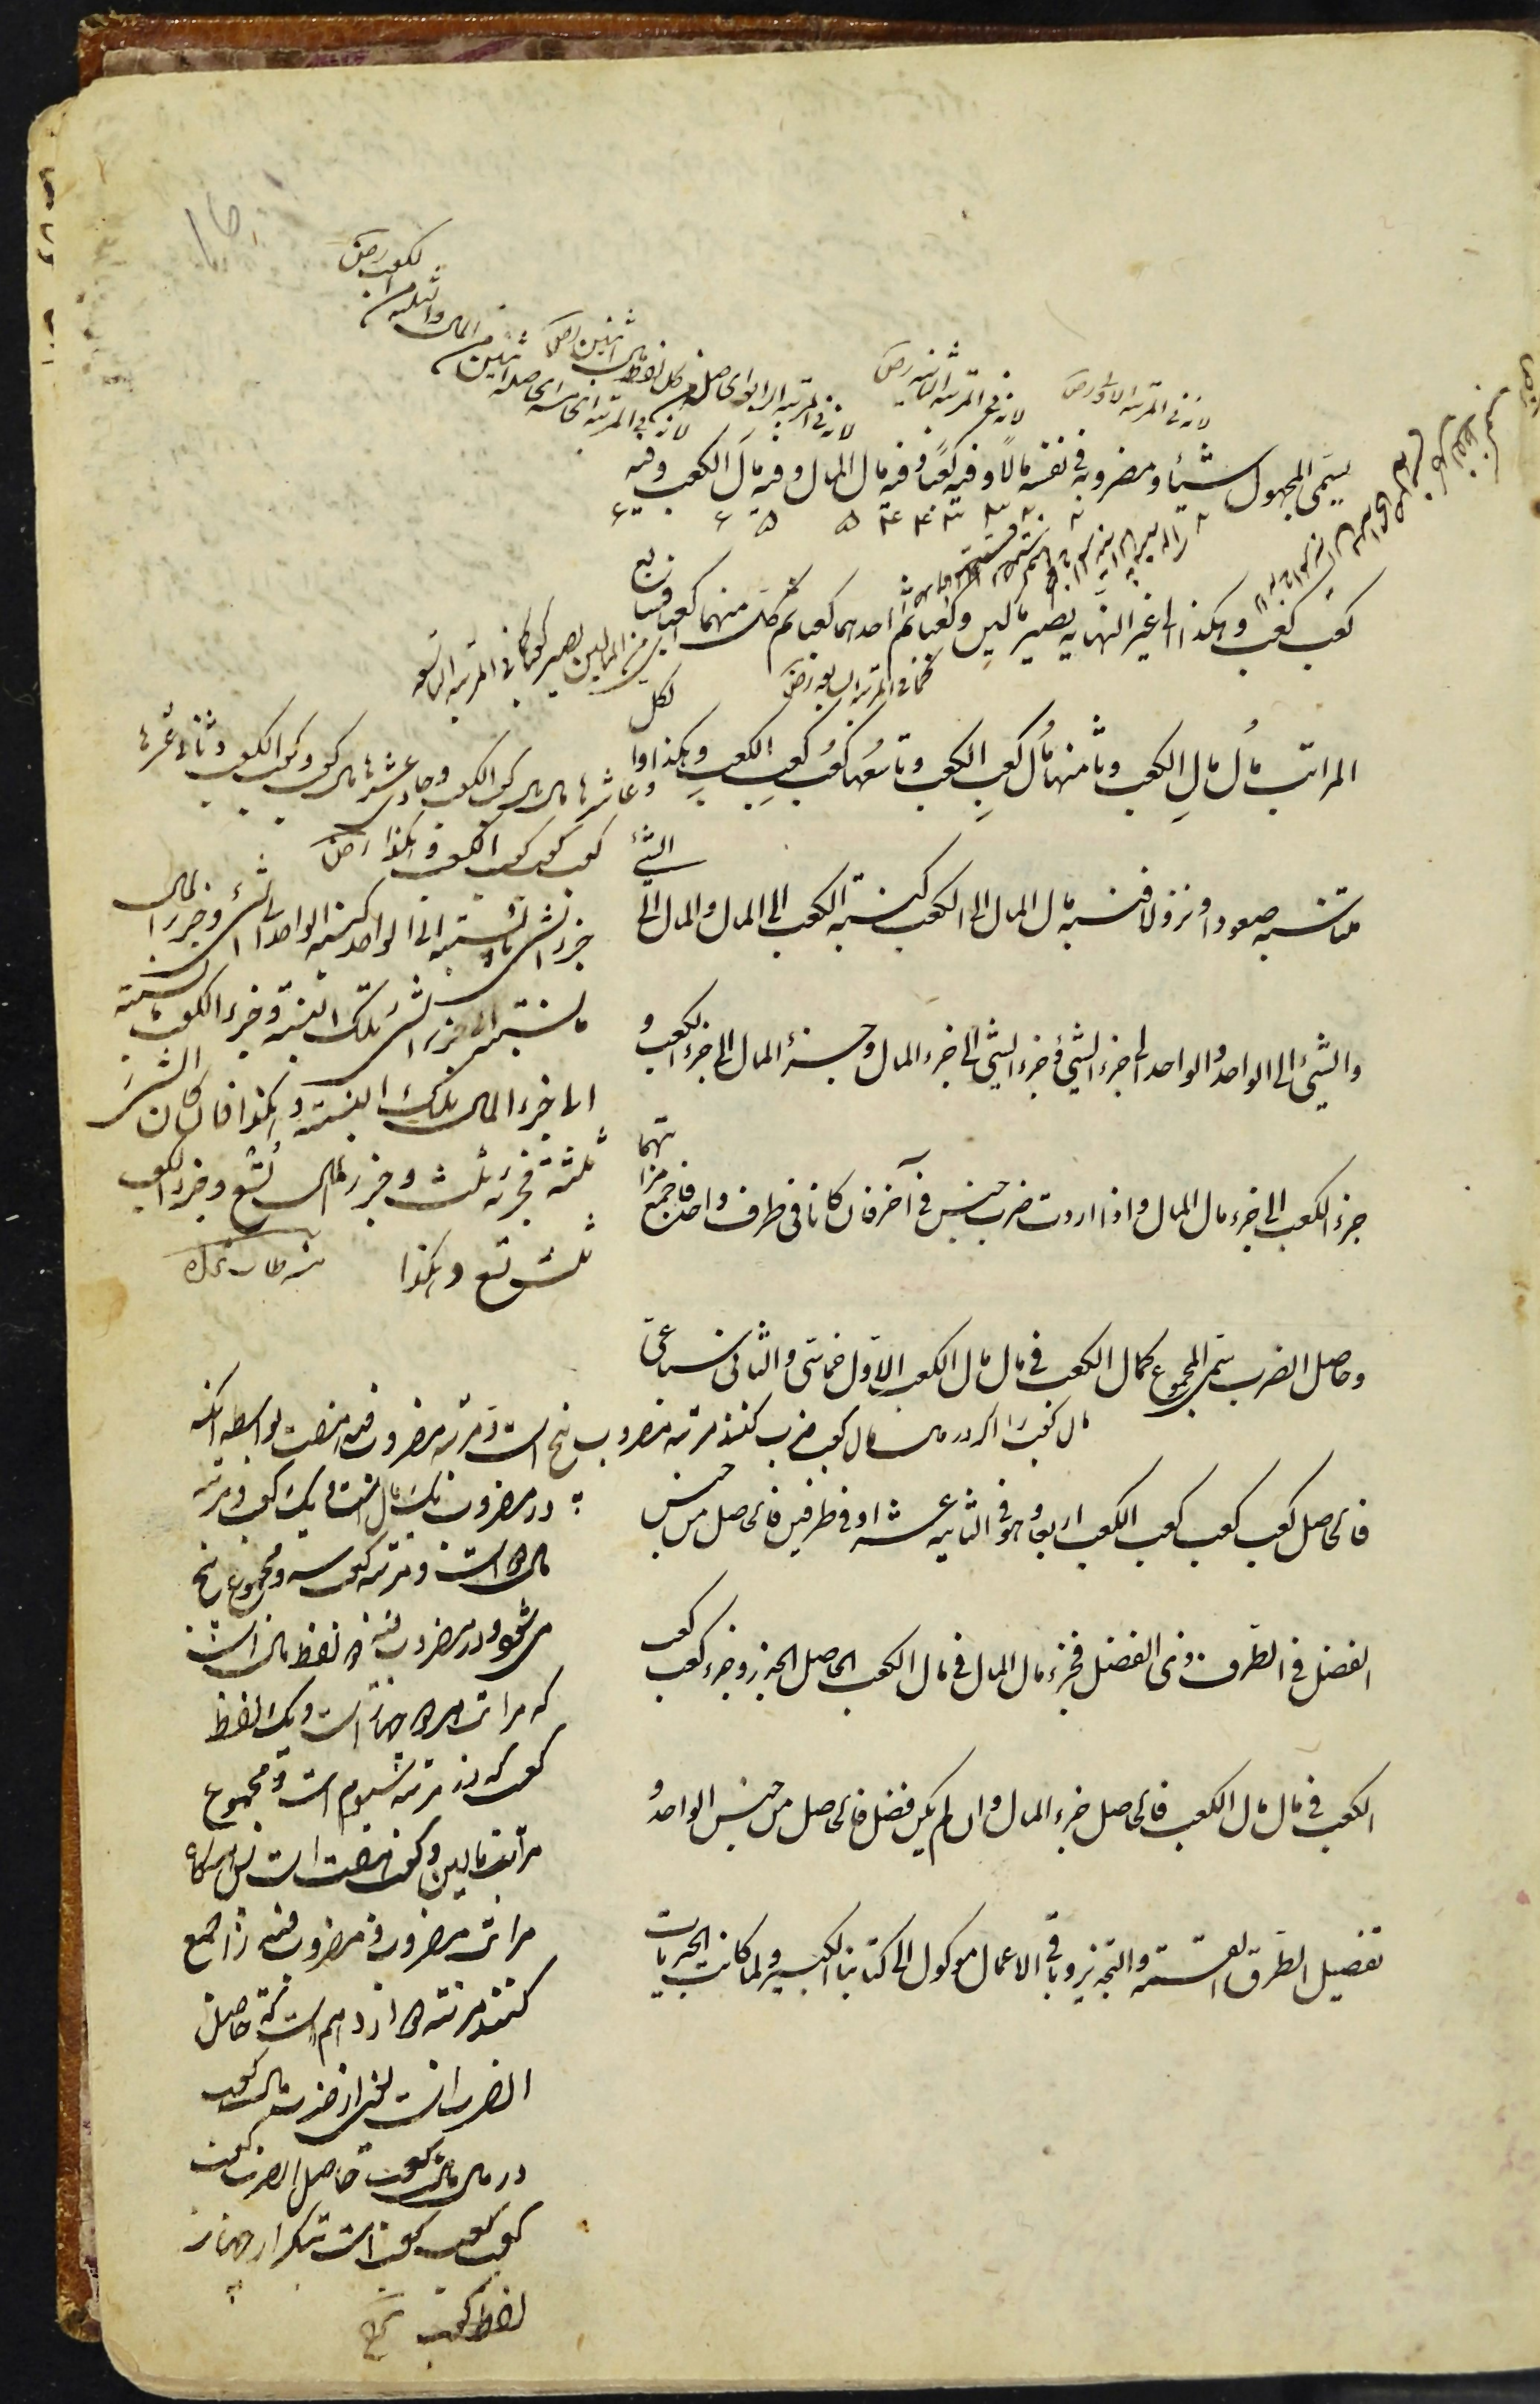 يسمى المجهول شيئا ومضروبه في نفسه مالا وفيه كعبا وفيه مال المال وفيه مال الكعب وفيه
كعب كعب وهكذا الى غير النهاية يصير مالين وكعبا ثم احدهما كعبا ثم كل منهما كعبا فسابع
المراتب مال مال الكعب وثامنها مال كعب الكعب وتاسعها كعب كعب الكعب وهكذا والكل
متناسبة صعودا ونزولا فنسبة مال المال الى الكعب كنسبة الكعب الى المال والمال الى الشئ
والشئ الى الواحد والواحد الى جزء الشئ وجزء الشئ الى جزء المال وجزء المال الى جزء الكعب و
جزء الكعب الى جزء مال المال واذا اردت ضرب جنس في آخر فان كانا في طرف واحد فاجمع مراتبهما
وحاصل الضرب سمى المجموع كمال الكعب في مال مال الكعب الاول خماسى والثانى سباعى
فالحاصل كعب كعب كعب الكعب اربعا وهو في الثانية عشر او في طرفين فالحاصل من جنس
الفضل في الطرف ذى الفضل فجزء مال المال في مال الكعب الحاصل الجذر وجزء كعب كعب
الكعب في مال مال الكعب فالحاصل جزء المال وان لم يكن فضل فالحاصل من جنس الواحد و
تفصيل الطرق القسمة والتجذير وباقى الاعمال موكول الى كتابنا الكبير ولما كانت الجبريات
لانه في المرتبة الاولى
لانه في المرتبة الثانية
لانه في المرتبة الرابعة الحاصلة من كل لفظ مال اثنين
لانه في المرتبة الخامسة الحاصلة اثنين من المال والثلثة من الكعب
اى من المالين يصير كعبا كما في المرتبة التاسعة
كما في المرتبة السابعة
وعاشرها مال مال كعب الكعب وحادى عشرها مال كعب وكعب الكعب وثانى عشرها
كعب كعب كعب الكعب وهكذا
جزء الشئ ما نسبته الى الواحد كنسبة الواحد الى الشئ وجزء المال
ما نسبته الى جزء الشئ تلك النسبة وجزء الكعب ما نسبته
الى جزء المال تلك النسبة وهكذا فان كان الشئ
ثلثة فجزئه ثلث وجزء المال تسع وجزء الكعب
ثلث تسع وهكذا
مال كعب را اكر در مال مال كعب ضرب كنند مرتبه مضروب پنج است ومرتبه مضروب فيه هفت بواسطه آنكه
در مضروب يك مال است ويك كعب ومرتبه
مال دو است ومرتبه كعب سه ومجموع پنج
مى شود ودر مضروب فيه دو لفظ مال است
كه مراتب هر دو چهار است ويك لفظ
كعب كه در مرتبه سيوم است ومجموع
مراتب مالين وكعب هفت است پس هركاه
مراتب مضروب ومضروب فيه را جمع
كنند مرتبه دوازدهم است كه حاصل
الضرب است يعنى از ضرب مال كعب
در مال مال كعب حاصل الضرب كعب
كعب كعب كعب است بتكرار چهار
لفظ كعب